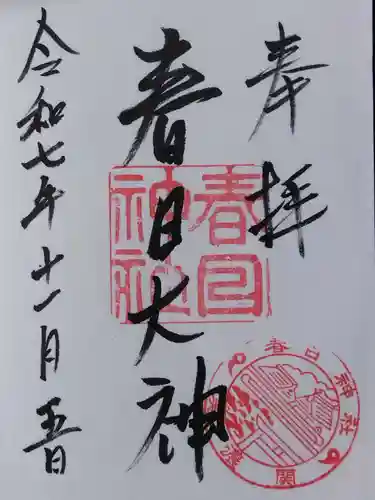 奉拝
春日大神
令和七年十一月五日
春日
神社
春日神社
関